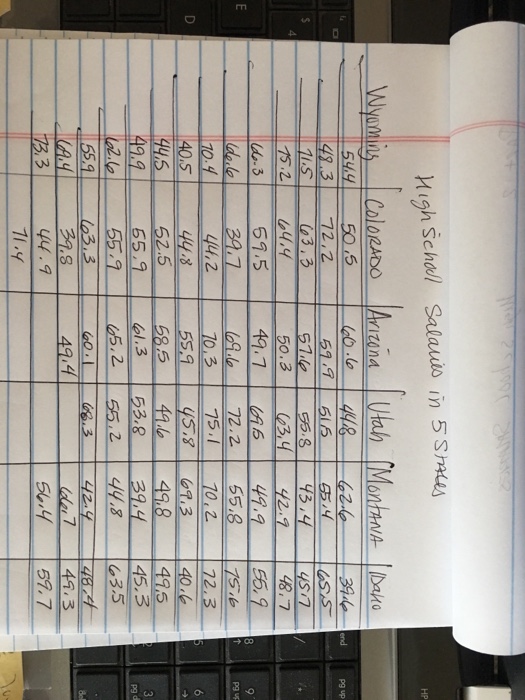 High School Salaries in 5 States
Wyoming Colorado Arizona Utah Montana Idaho
51.4 50.5 60.6 44.8 62.6 39.6
48.3 72.2 59.9 51.5 55.4 65.5
71.5 63.3 57.6 55.8 43.4 45.7
75.2 64.4 50.3 63.4 42.9 48.7
66.3 59.5 49.7 69.5 49.9 55.9
66.6 39.7 69.6 72.2 55.8 75.6
70.4 44.2 70.3 75.1 70.2 72.3
40.5 44.8 55.9 45.8 69.3 40.6
44.5 52.5 58.5 49.6 49.8 49.5
49.9 55.9 61.3 53.8 39.4 45.3
62.6 55.9 65.2 55.2 44.8 63.5
55.9 63.3 60.1 68.3 42.4 48.4
69.4 39.8 49.4 66.7 49.3
73.3 44.9 56.4 59.7
71.4
HP
end
pg up
E
D
$
4